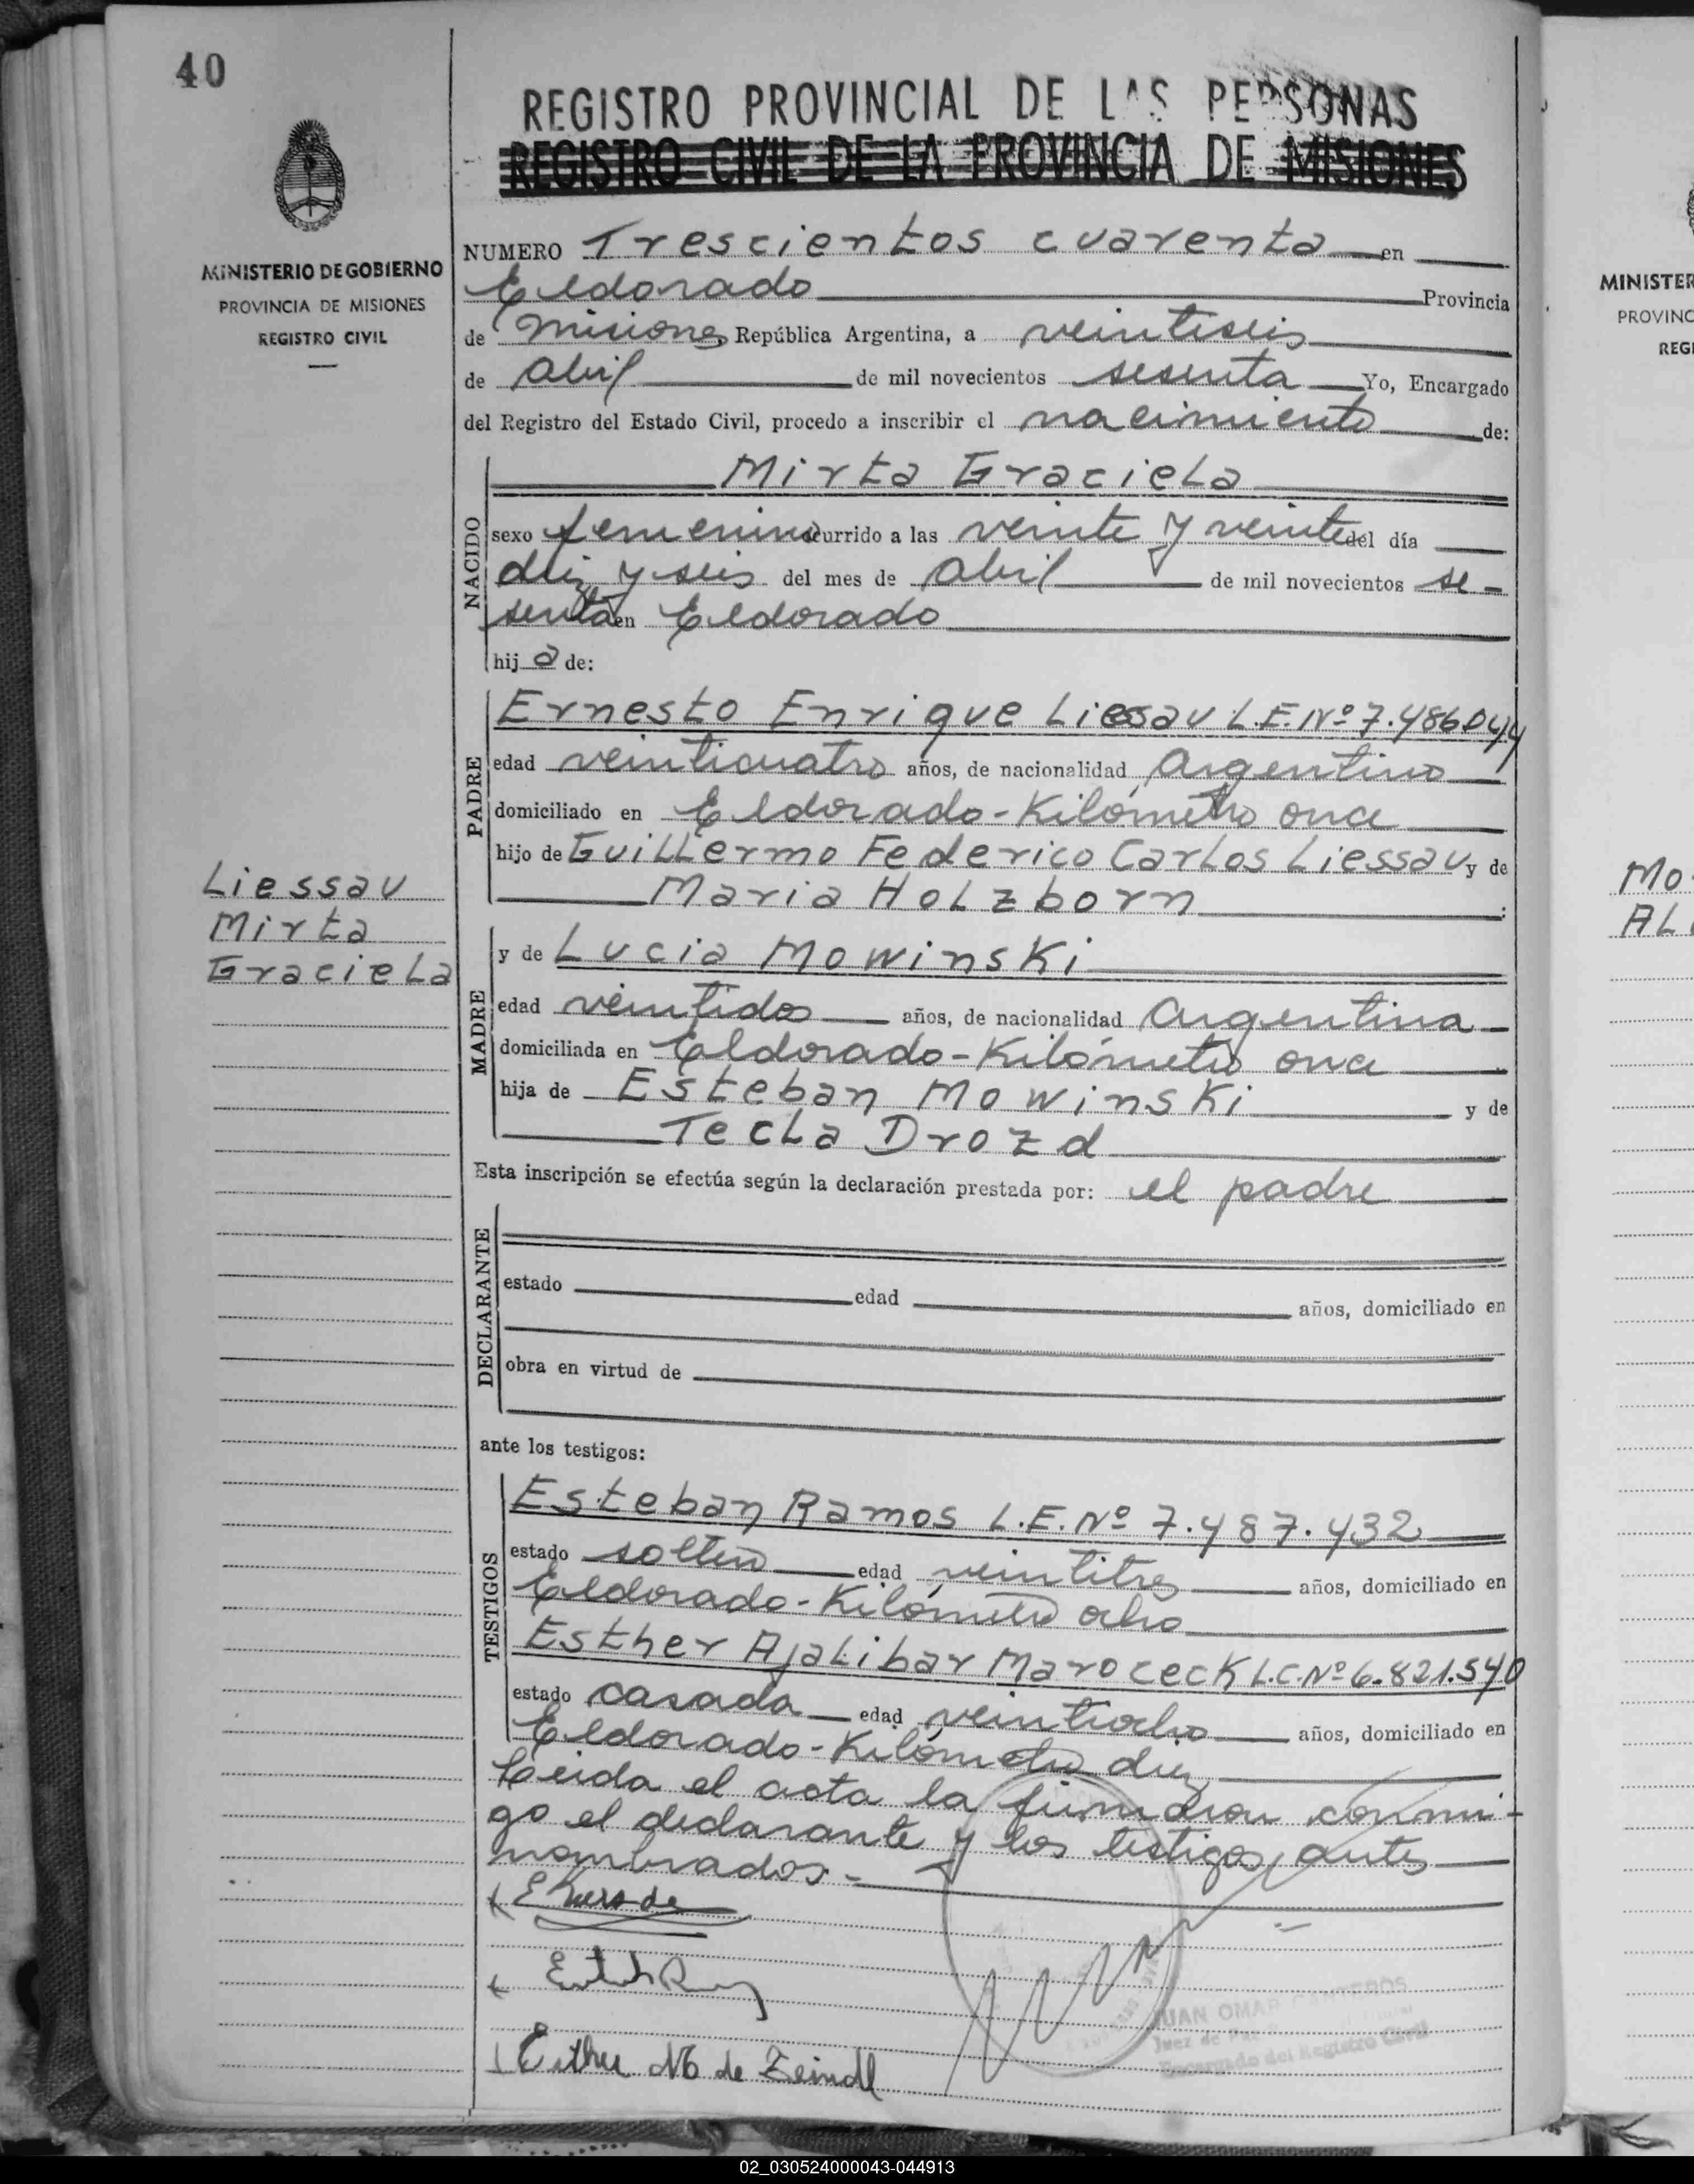 40
REGISTRO PROVINCIAL DE LAS PERSONAS
REGISTRO CIVIL DE LA PROVINCIA DE MISIONES
MINISTERIO DE GOBIERNO
PROVINCIA DE MISIONES
REGISTRO CIVIL
NUMERO Trescientos cuarenta en
Eldorado Provincia
de Misiones República Argentina, a veintiseis
de Abril de mil novecientos sesenta Yo, Encargado
del Registro del Estado Civil, procedo a inscribir el nacimiento de:
Mirta Graciela
NACIDO
sexo femenino ocurrido a las veinte y veinte del día
diez y seis del mes de Abril de mil novecientos se-
senta en Eldorado
hija de:
PADRE
Ernesto Enrique Liessau L.E. Nº 7.486.044
edad veinticuatro años, de nacionalidad Argentino
domiciliado en Eldorado-Kilómetro once
hijo de Guillermo Federico Carlos Liessau y de
Maria Holzborn
Liessau
Mirta
Graciela
MADRE
y de Lucia Mowinski
edad veintidos años, de nacionalidad Argentina
domiciliada en Eldorado-Kilómetro once
hija de Esteban Mowinski y de
Tecla Drozd
Esta inscripción se efectúa según la declaración prestada por: el padre
DECLARANTE
estado edad años, domiciliado en
obra en virtud de
ante los testigos:
TESTIGOS
Esteban Ramos L.E. Nº 7.487.432
estado soltero edad veintitres años, domiciliado en
Eldorado-Kilómetro ocho
Esther Ajalibar Maroceck L.C. Nº 6.821.540
estado casada edad veintiocho años, domiciliado en
Eldorado-Kilómetro diez
Leida el acta la firmaron conmi-
go el declarante y los testigos antes
nombrados.-
Esther M de Zeindl
JUAN OMAR CANTEROS
Juez de Paz
Encargado del Registro Civil
MINISTER
PROVINC
REGI
Mo
AL
02_030524000043-044913